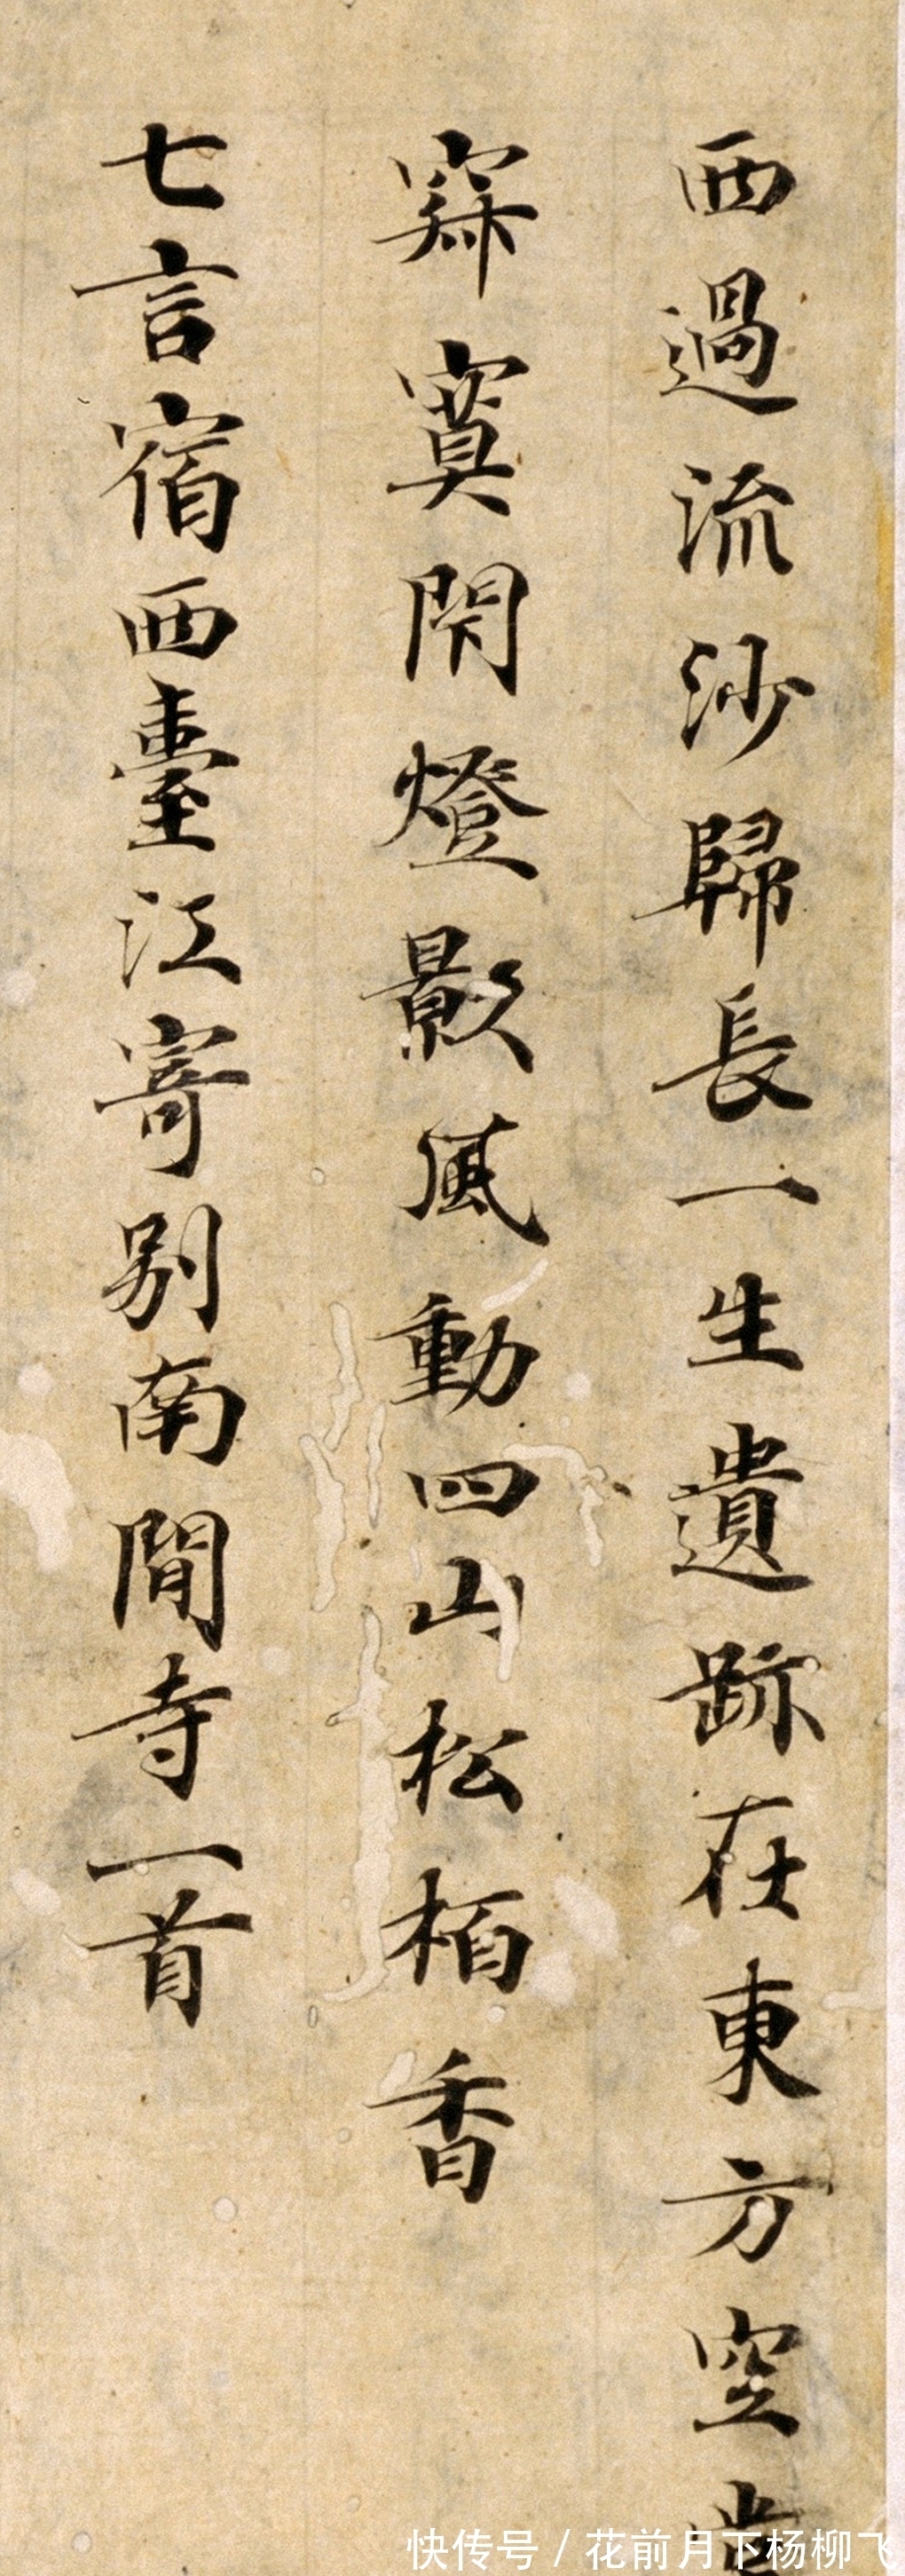 西過流沙歸長一生遺跡在東方空
寂寞閇燈影風動四山松栢香
七言宿西臺江寄別南閒寺一首
快传号 / 花前月下杨柳飞